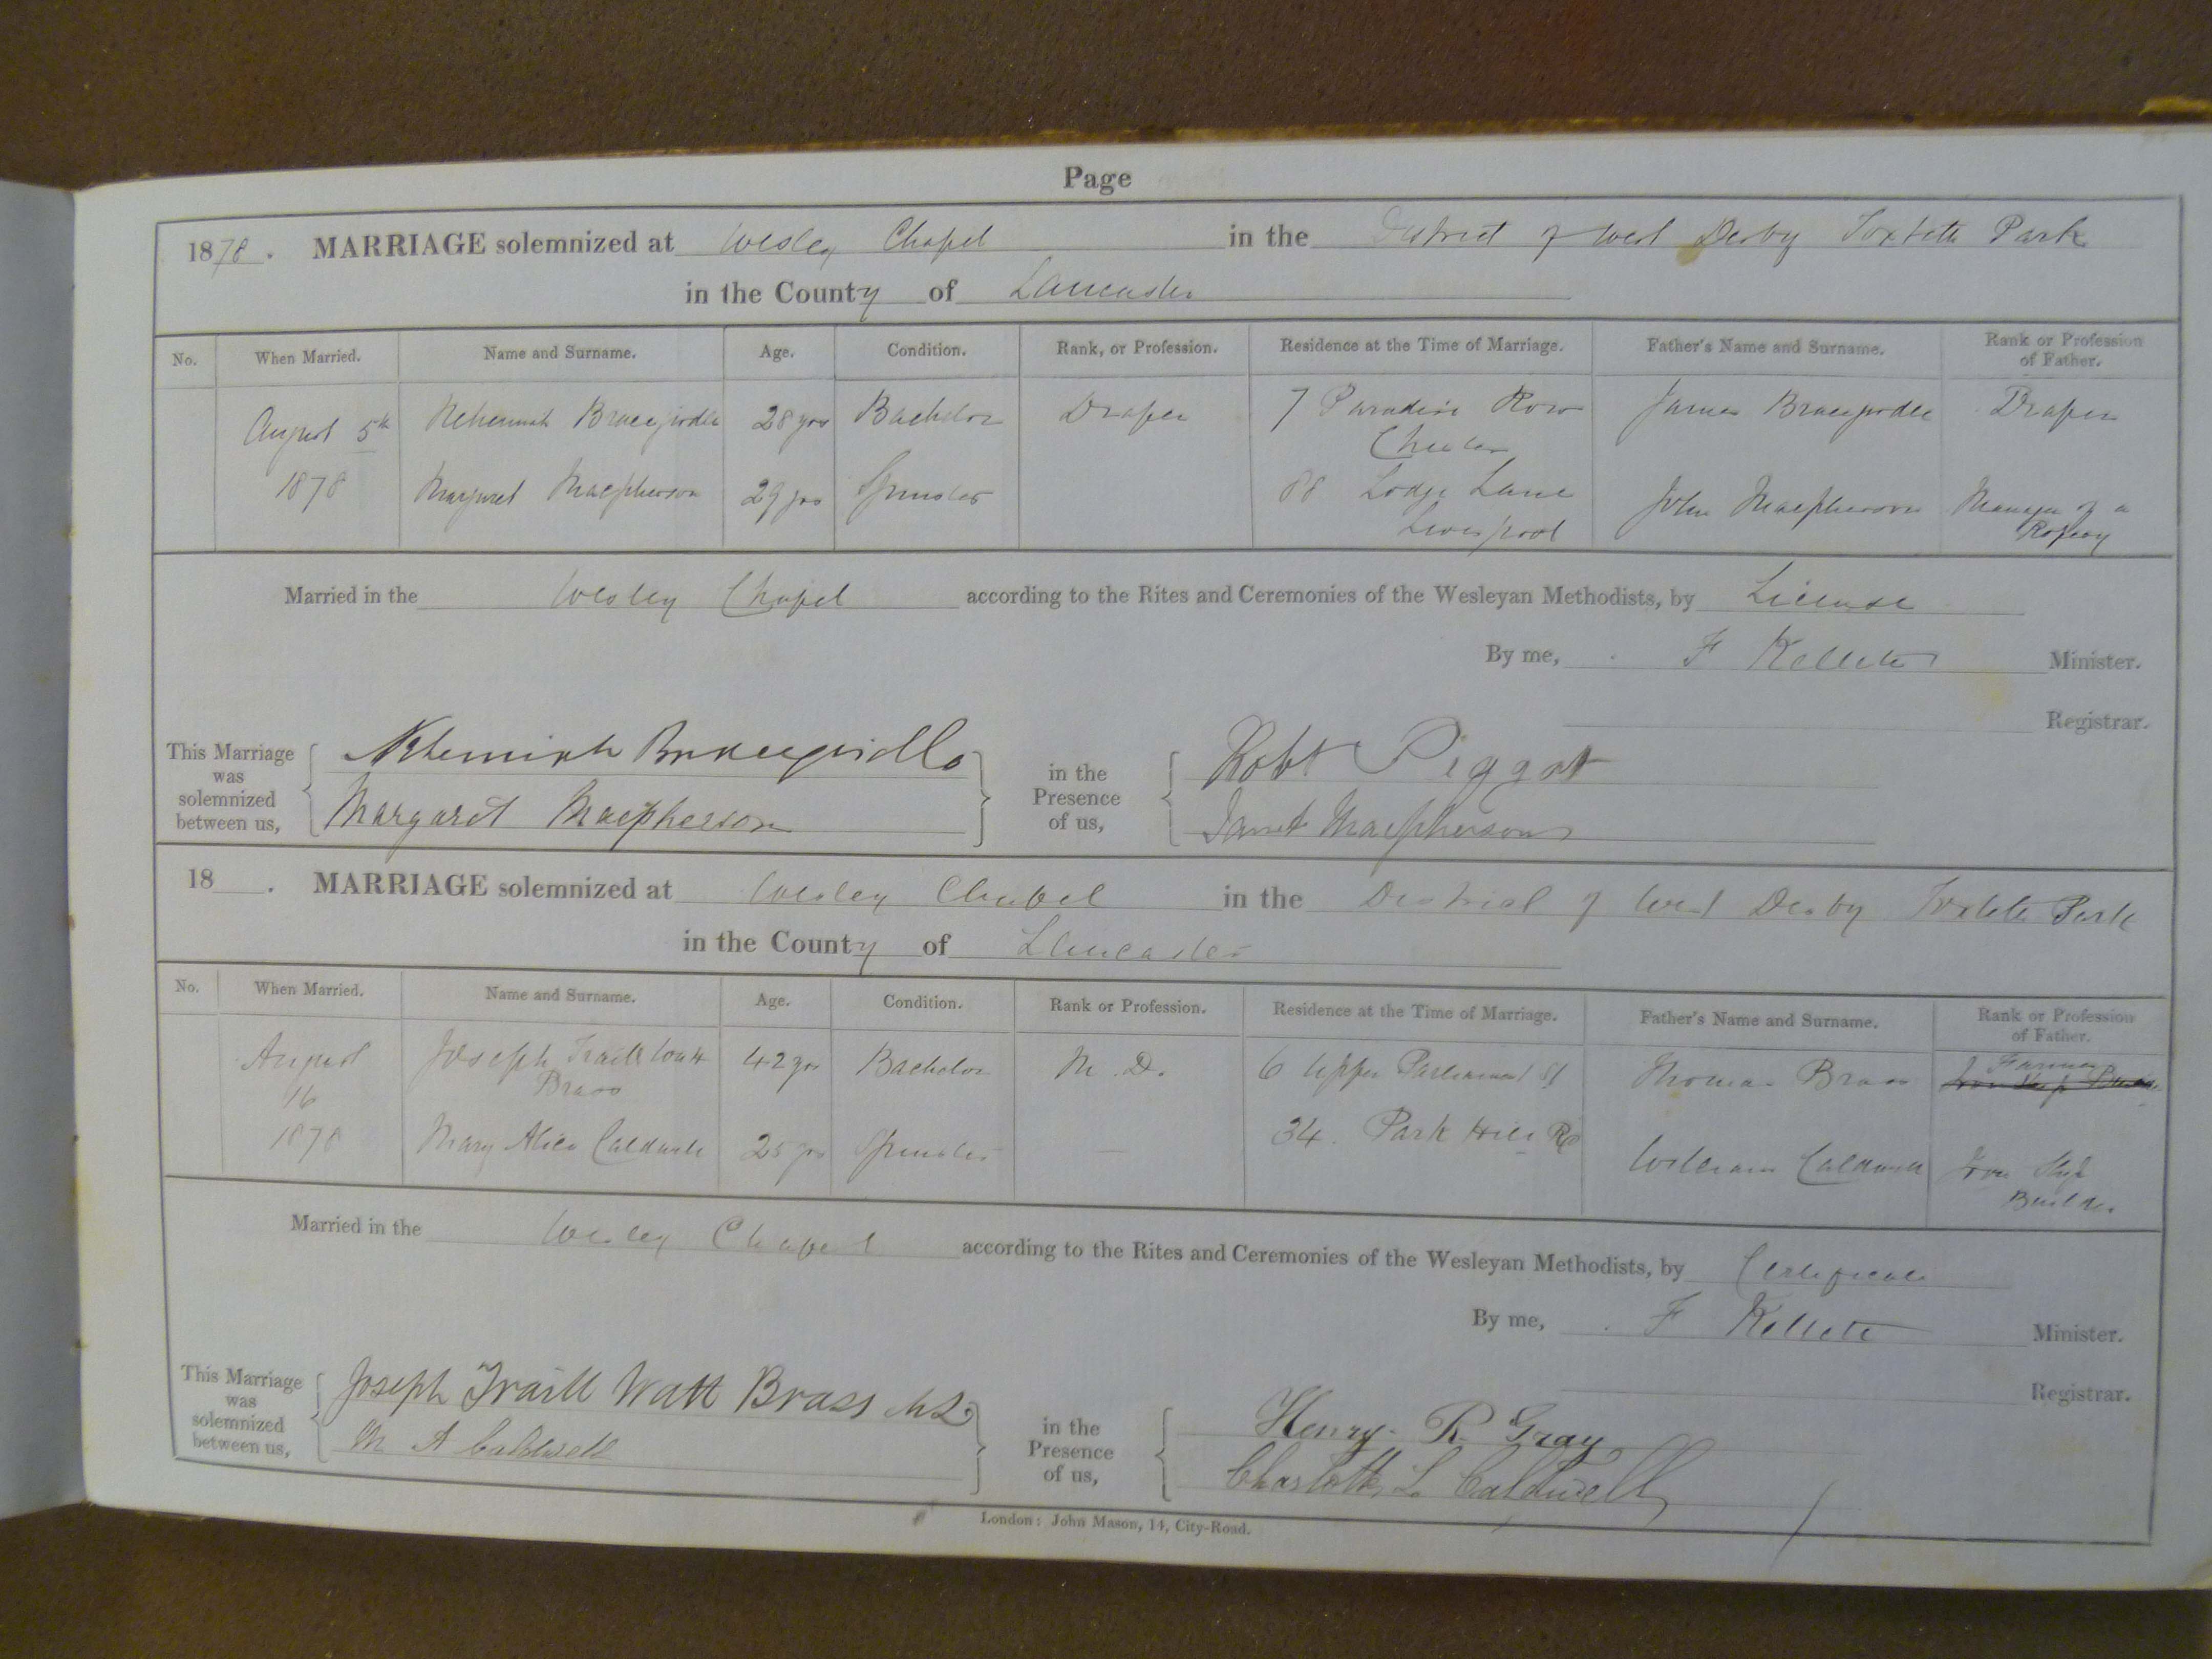 Page
1878. MARRIAGE solemnized at Wesley Chapel in the District of West Derby Toxteth Park
in the County of Lancaster
No. When Married. Name and Surname. Age. Condition. Rank, or Profession. Residence at the Time of Marriage. Father's Name and Surname. Rank or Profession of Father.
August 5th Nehemiah Bracegirdle 28 yrs Bachelor Draper 7 Paradise Row Chester James Bracegirdle Draper
1878 Margaret Macpherson 29 yrs Spinster 88 Lodge Lane Liverpool John Macpherson Manager of a Ropery
Married in the Wesley Chapel according to the Rites and Ceremonies of the Wesleyan Methodists, by License
By me, F Kellett Minister.
Registrar.
This Marriage was solemnized between us, Nehemiah Bracegirdle in the Presence of us, Robt Piggot
Margaret Macpherson Janet Macpherson
18 . MARRIAGE solemnized at Wesley Chapel in the District of West Derby Toxteth Park
in the County of Lancaster
No. When Married. Name and Surname. Age. Condition. Rank or Profession. Residence at the Time of Marriage. Father's Name and Surname. Rank or Profession of Father.
August 16 Joseph Traill Watt Brass 42 yrs Bachelor M.D. 6 Upper Parliament St Thomas Brass Farmer Iron Ship Builder
1878 Mary Alice Caldwell 25 yrs Spinster — 34. Park Hill Rd William Caldwell Iron Ship Builder
Married in the Wesley Chapel according to the Rites and Ceremonies of the Wesleyan Methodists, by Certificate
By me, F Kellett Minister.
Registrar.
This Marriage was solemnized between us, Joseph Traill Watt Brass in the Presence of us, Henry. R. Gray
M A Caldwell Charlotte L Caldwell
London: John Mason, 14, City-Road.